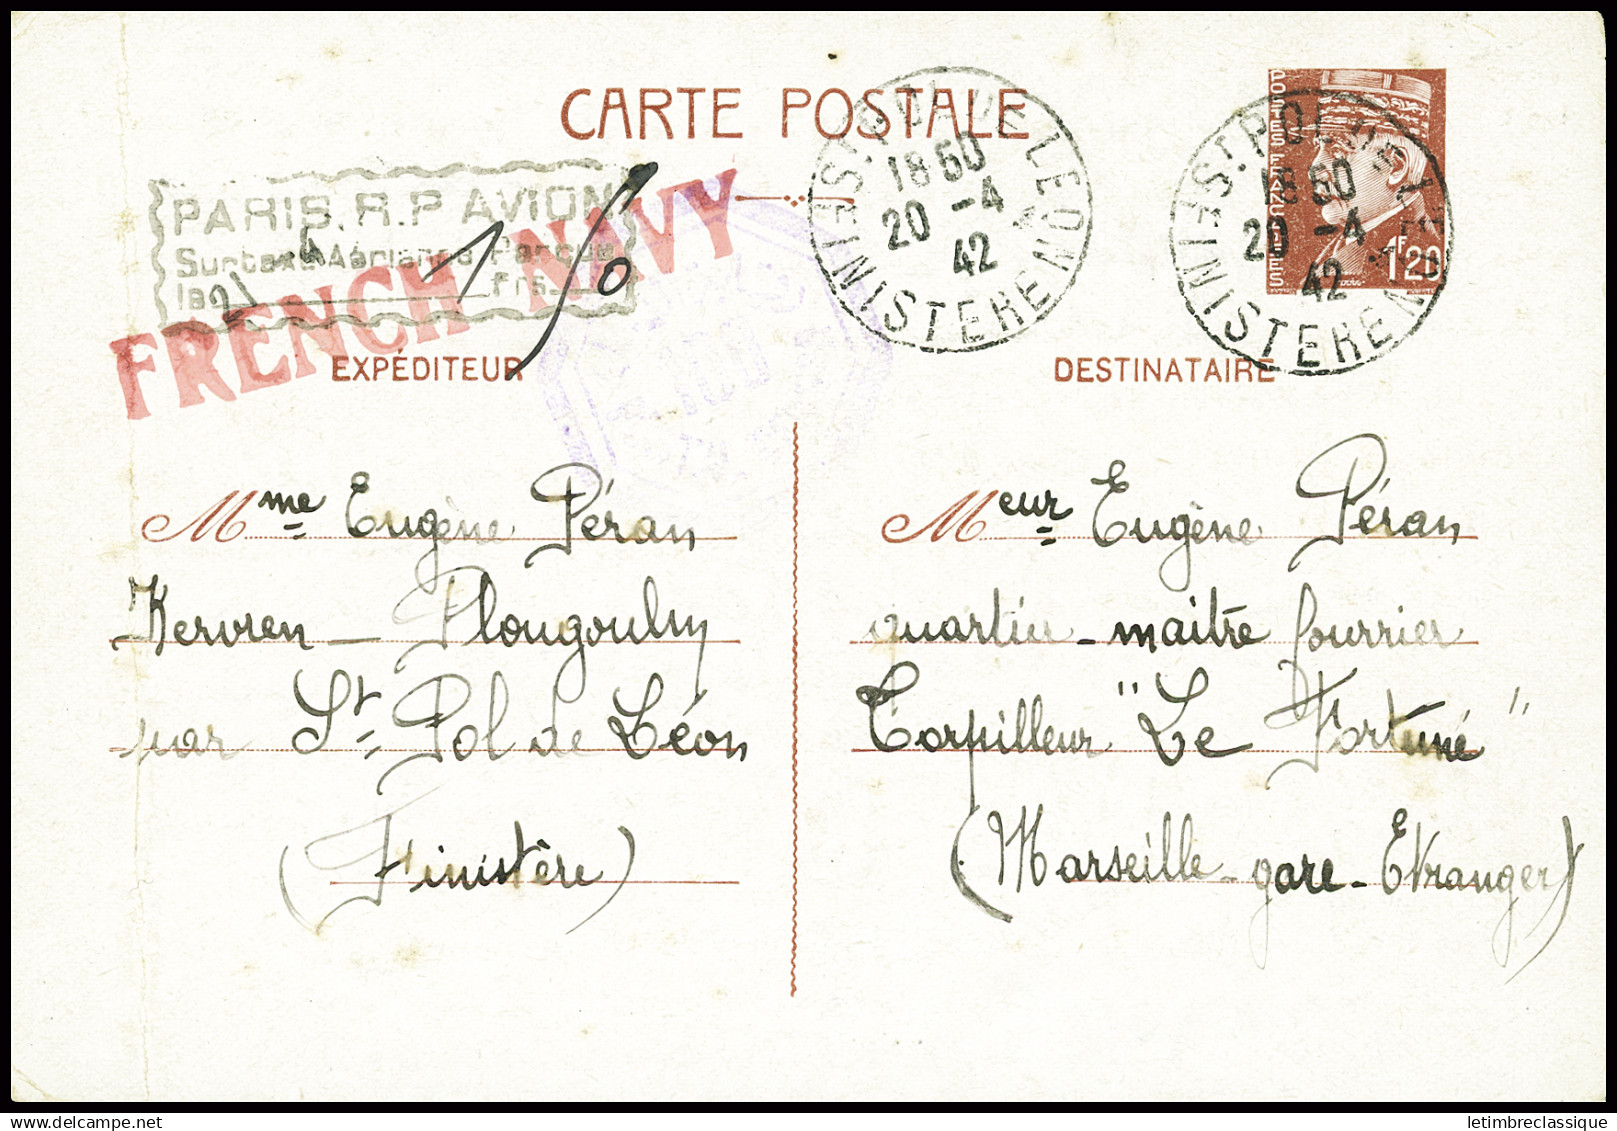 CARTE POSTALE
POSTES FRANÇAISES
1F20
ST POL DE LEON
18 50
20 -4
42
FINISTERE
ST POL DE LEON
18 50
20 -4
42
FINISTERE
PARIS.R.P AVION
Surtaxe Aérienne Perçue
le frs
FRENCH NAVY
EXPÉDITEUR
DESTINATAIRE
Mme Eugène Péran
Kervren - Plougoulm
par St Pol de Léon
(Finistère)
Meur Eugène Péran
quartier-maitre fourrier
Torpilleur "Le Fortuné"
(Marseille-gare-Etranger)
delcampe.net
letimbreclassique